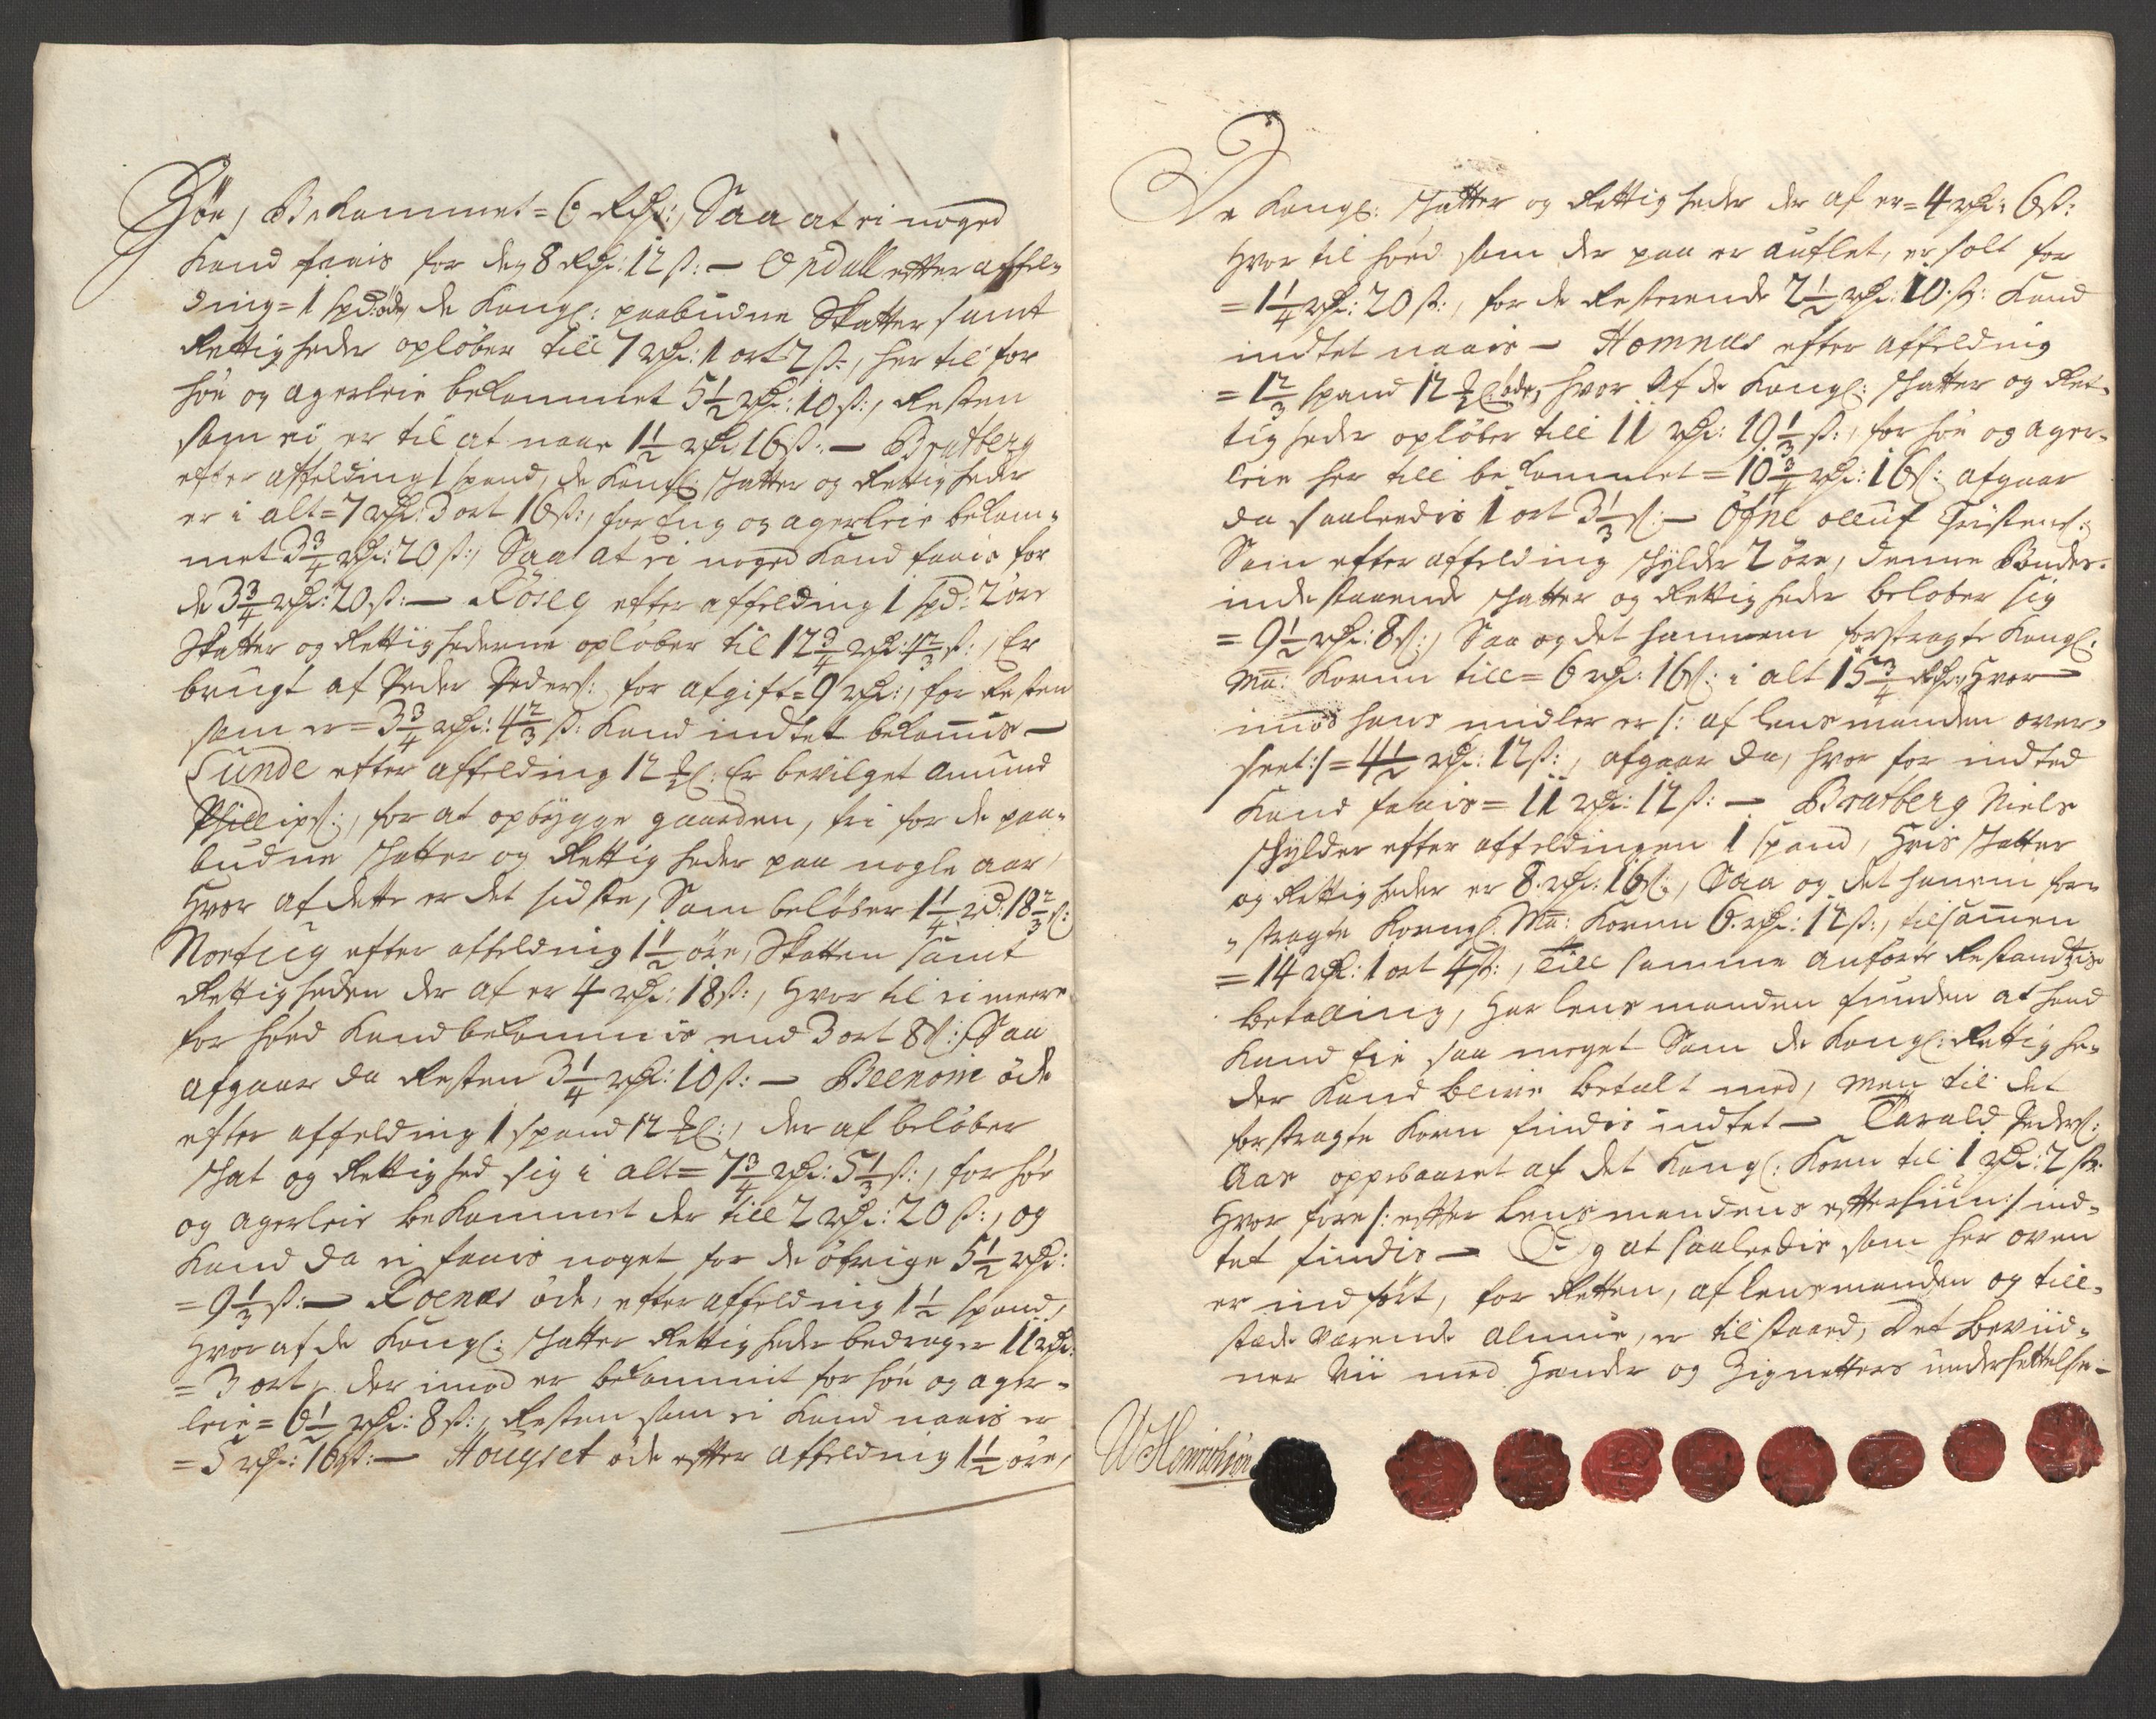 Höe, Bekommet = 6 Rdr:, Saa at ei noged
kand faais for de 8 Rdr: 12 s: — Opdall efter affel-
ding = 1 spd: øde, de Kongl: paabudne Skatter samt
Rettigheder opløber till 7 rdr: 1 ort 2 s:, her til for
höe og agerleie bekommet 5 1/2 rdr: 10 s:, Resten
som ei er til at naae 1 1/2 rdr 16 s: — Bratberg
efter affelding 1 spand, de Kongl: skatter og Rettigheder
er i alt = 7 rdr: 3 ort 16 s:, for Eng og agerleie bekom-
met 3 3/4 rdr: 20 s:, Saa at ei noged kand faais for
de 3 3/4 rdr: 20 s: — Röseg efter affelding 1 spd: 2 öre
Skatter og Rettighederne opløber til 12 3/4 rdr: 4 2/3 s:, Er
brugt af Peder Peders: for afgift = 9 rdr:, for Resten
som er = 3 3/4 rdr: 4 2/3 s: kand indtet bekomis —
Sunde efter affelding 12 : Er bevilget Amund
Phillips:, for at opbygge gaarden, fri for de paa-
budne skatter og Rettigheder paa nogle aar,
Hvor af dette er det sidste, Som beløber 1 1/4 rd: 18 2/3 s:
Norteig efter affelding 1 1/2 öre, Skatten samt
Rettigheden der af er 4 rdr: 18 s:, Hvor til ei meere
for höed kand bekommis end 3 ort 8 s: Saa
afgaar da Resten 3 1/4 rdr: 10 s: — öde
efter affelding 1 spand 12 :, der af beløber
skat og Rettighed sig i alt = 7 3/4 rdr: 5 1/3 s:, for höe
og agerleie bekommet der till 2 rdr: 20 s:, og
kand da ei faais noget for de öfrige 5 1/2 rdr:
= 9 1/3 s: — Roenæs öde, efter affelding 1 1/2 spand,
Hvor af de Kongl: skatter Rettigheder bedrager 11 rdr:
= 3 ort, der imod er bekommit for höe og ager-
leie = 6 1/2 rdr: 8 s:, Resten som ei kand naais er
= 5 rdr: 16 s: — Hougset öde efter affelding 1 1/2 öre,
De Kongl: skatter og Rettigheder der af er = 4 rdr: 6 s:
Hvor til höed som der paa er auflet, er solt for
= 1 1/4 rdr: 20 s:, for de Resterende 2 1/2 rdr: 10 s: kand
indtet naais — Homnæs efter affelding
= 1 2/3 spand 12 øde, hvor af de Kongl: skatter og Ret-
tigheder opløber till 11 rdr: 19 1/3 s:, for höe og ager-
leie her till bekommet = 10 3/4 rdr: 16 s: afgaar
da saaledis 1 ort 3 1/3 s: — Öfne olluf Tøstens:
Som efter affelding skylder 2 öre, denne Bondes
inde staaende skatter og Rettigheder beløber sig
= 9 1/2 rdr: 8 s:, Saa og det hannem forstragte Kongl:
Ma: Korn till = 6 rdr: 16 s: i alt 15 3/4 Rdr, Hvor
imod hans midler er /: af lensmanden over-
seet :/ = 4 1/2 rdr: 12 s:, afgaar da, hvor for indted
kand faais = 11 rdr: 12 s: — Bratberg Niels
skylder efter affeldingen 1 spand, Hvis skatter
og Rettigheder er 8 rdr: 16 s:, Saa og det hanem for-
stragte Kongl: Ma: Korn 6 rdr: 12 s:, tilsamen
= 14 rdr: 1 ort 4 s:, till samme anførte Restandzis
betalling, har lensmanden funden at hand
kand eie saa meget Som de Kongl: Rettighe-
der kand blive betalt med, men til det
forstragte Korn findis indtet — Tarald Peders:
Aas oppebaaret af det Kongl: Korn til 1 rdr: 2 s:
Hvor fore /: efter Lensmandens :/ ind-
tet findis — Og at saaledis som her oven
er indført, for Retten, af lensmanden og till-
stede værende almue, er tilstaaed, det beviid-
ner vii med Hender og Zignetters undersettelse —
W Henrichsøn